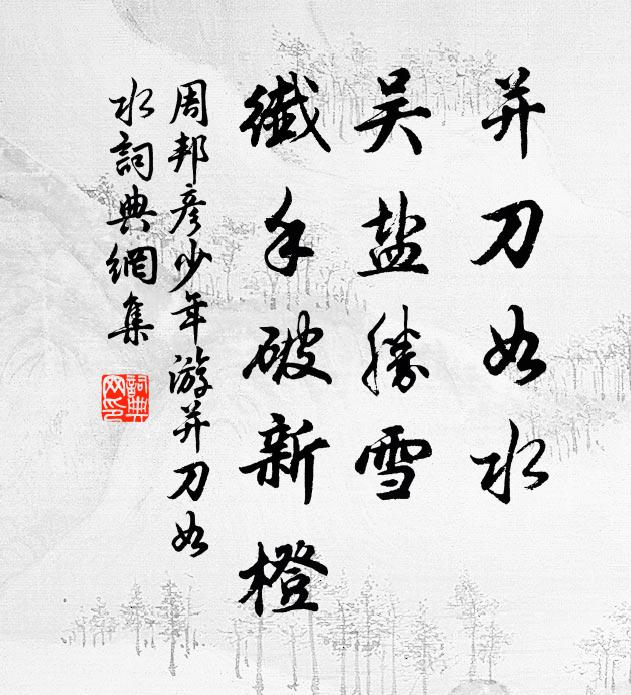 并刀如水
吴盐勝雪
纖手破新橙
周邦彦少年游并刀如
水詞典網集
詞典
网印